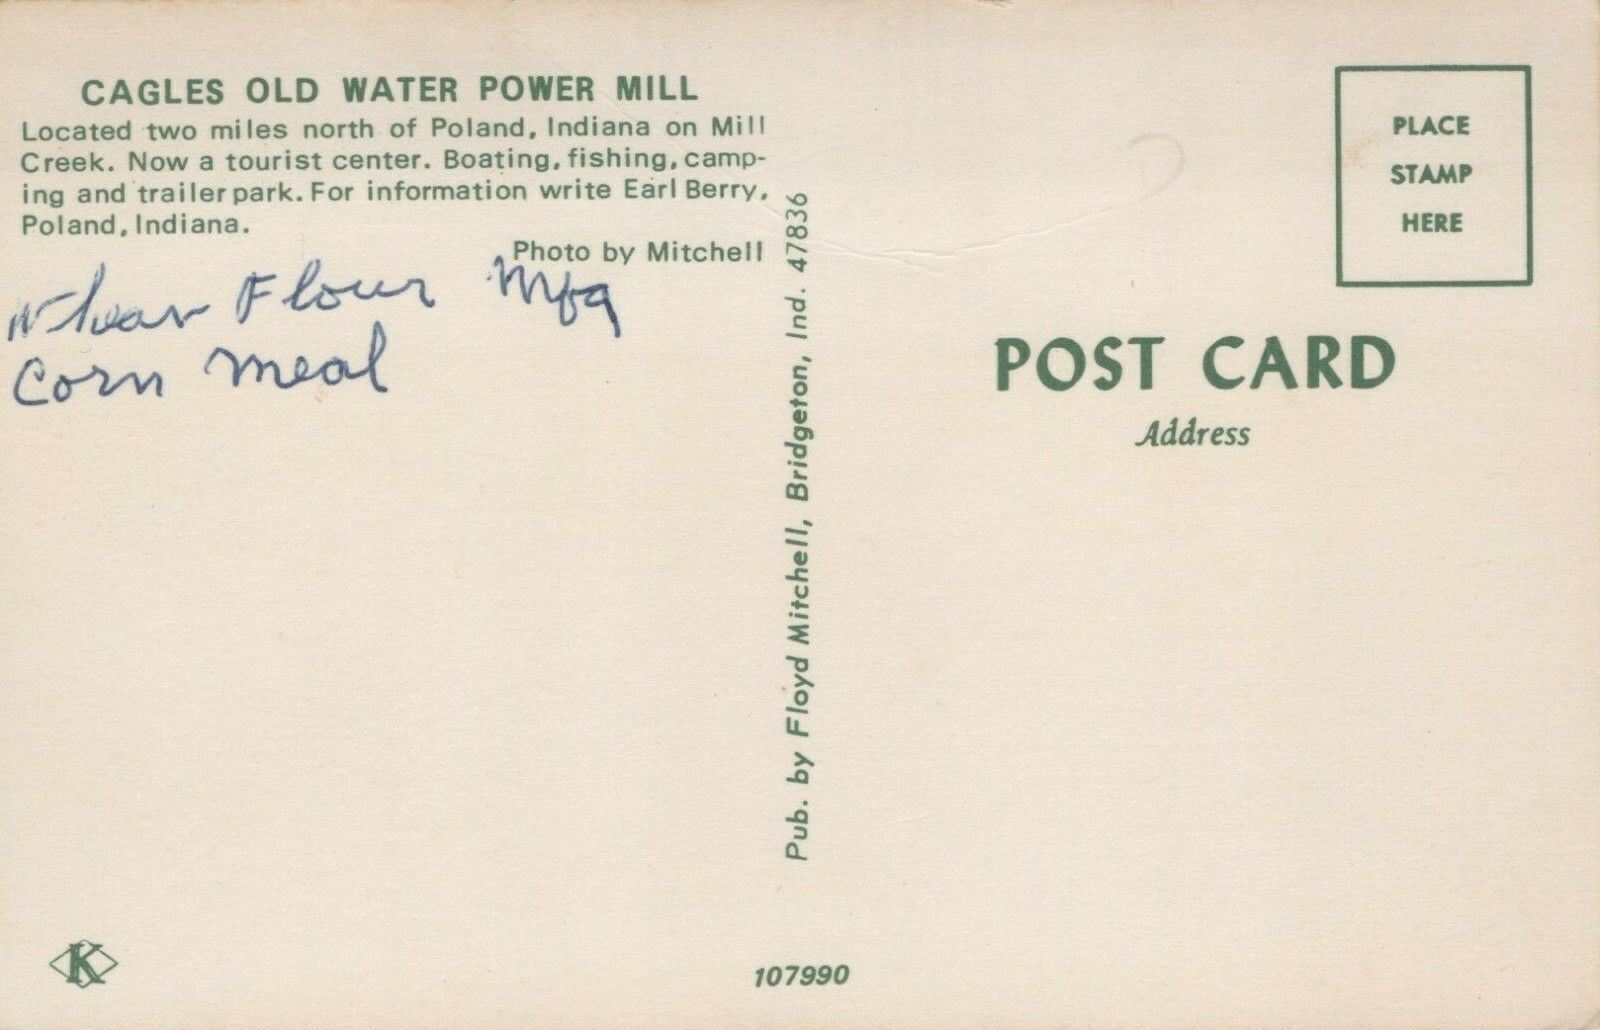 CAGLES OLD WATER POWER MILL
Located two miles north of Poland, Indiana on Mill
Creek. Now a tourist center. Boating, fishing, camp-
ing and trailer park. For information write Earl Berry,
Poland, Indiana.
Photo by Mitchell
Flour Mfg
Corn meal
Pub. by Floyd Mitchell, Bridgeton, Ind. 47836
PLACE
STAMP
HERE
POST CARD
Address
K
107990